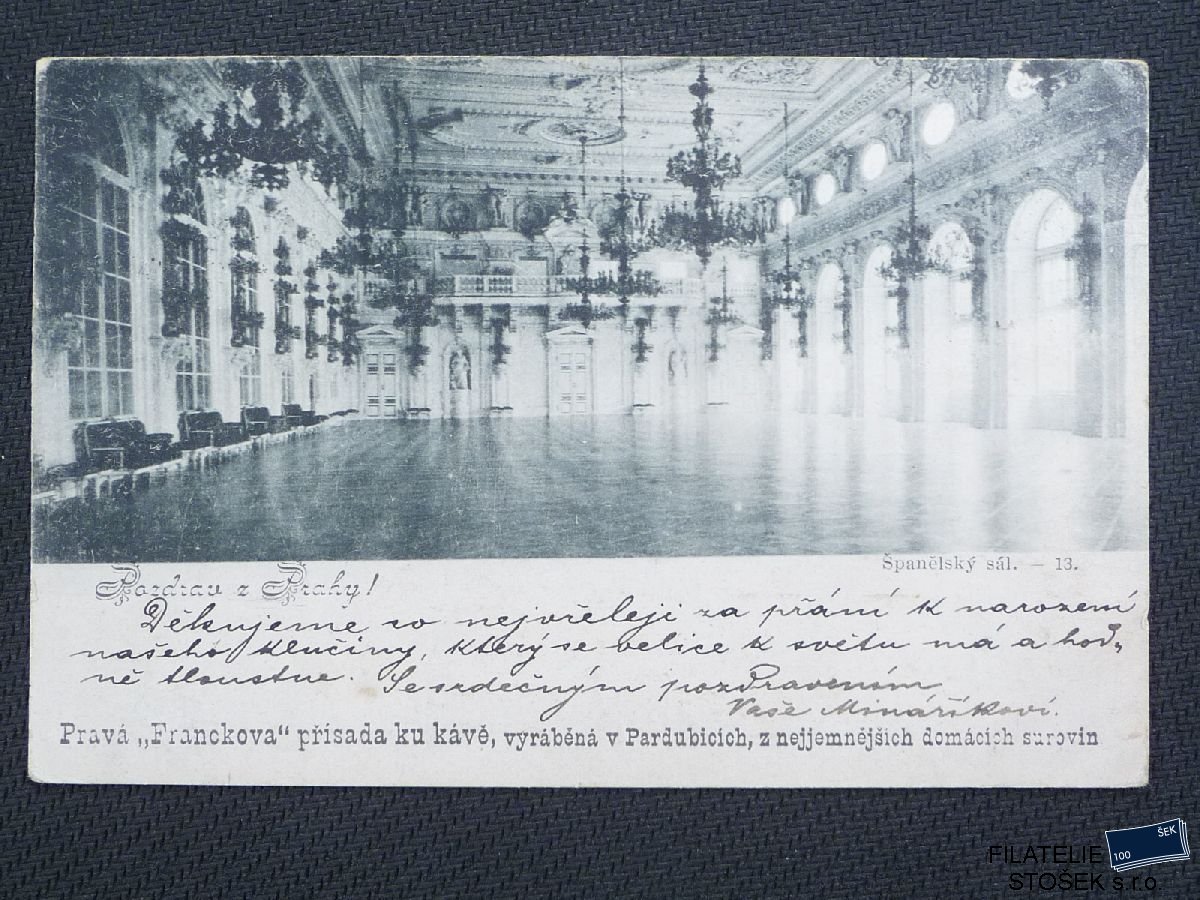 Pozdrav z Prahy!
Španělský sál. — 13.
Děkujeme co nejvřeleji za přání k narození
našeho klučiny, který se velice k světu má a hod„
ně tloustne. Se srdečným pozdravením
Vaše Minaříkovi.
Pravá „Franckova“ přísada ku kávě, vyráběná v Pardubicích, z nejjemnějších domácích surovin
FILATELIE
STOŠEK s.r.o.
100 ŠEK